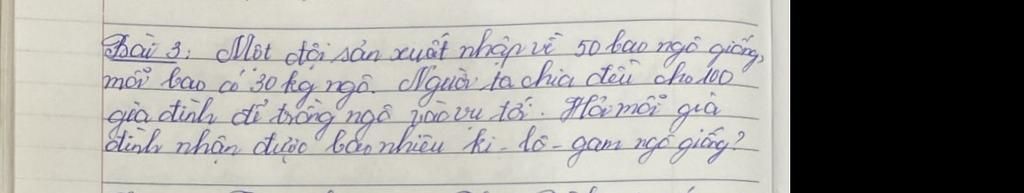 Bài 3: Một đội sản xuất nhập về 50 bao ngô giống,
mỗi bao có 30 kg ngô. Người ta chia đều cho 100
gia đình để trồng ngô vào vụ tới. Hỏi mỗi gia
đình nhận được bao nhiêu ki-lô-gam ngô giống?